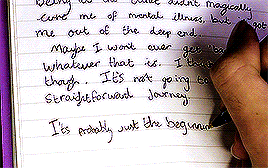 being in the didn't magically
cure me of mental illness, but got
me out of the deep end...
Maybe I wont ever get
whatever that is. I
though. It's not going to
straightforward journey
It's probably just the beginning